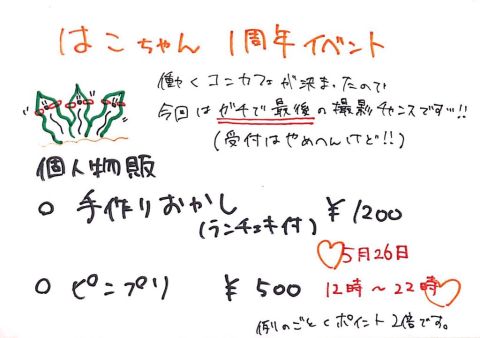 はこちゃん 1周年イベント
働くコンカフェが決まったので
今回はガチで最後の撮影チャンスです…!!
(受付はやめへんけど!!)
個人物販
○ 手作りおかし ¥1200
(ランチェキ付)
5月26日
○ ピンプリ ¥500 12時〜22時
例のごとくポイント2倍です。